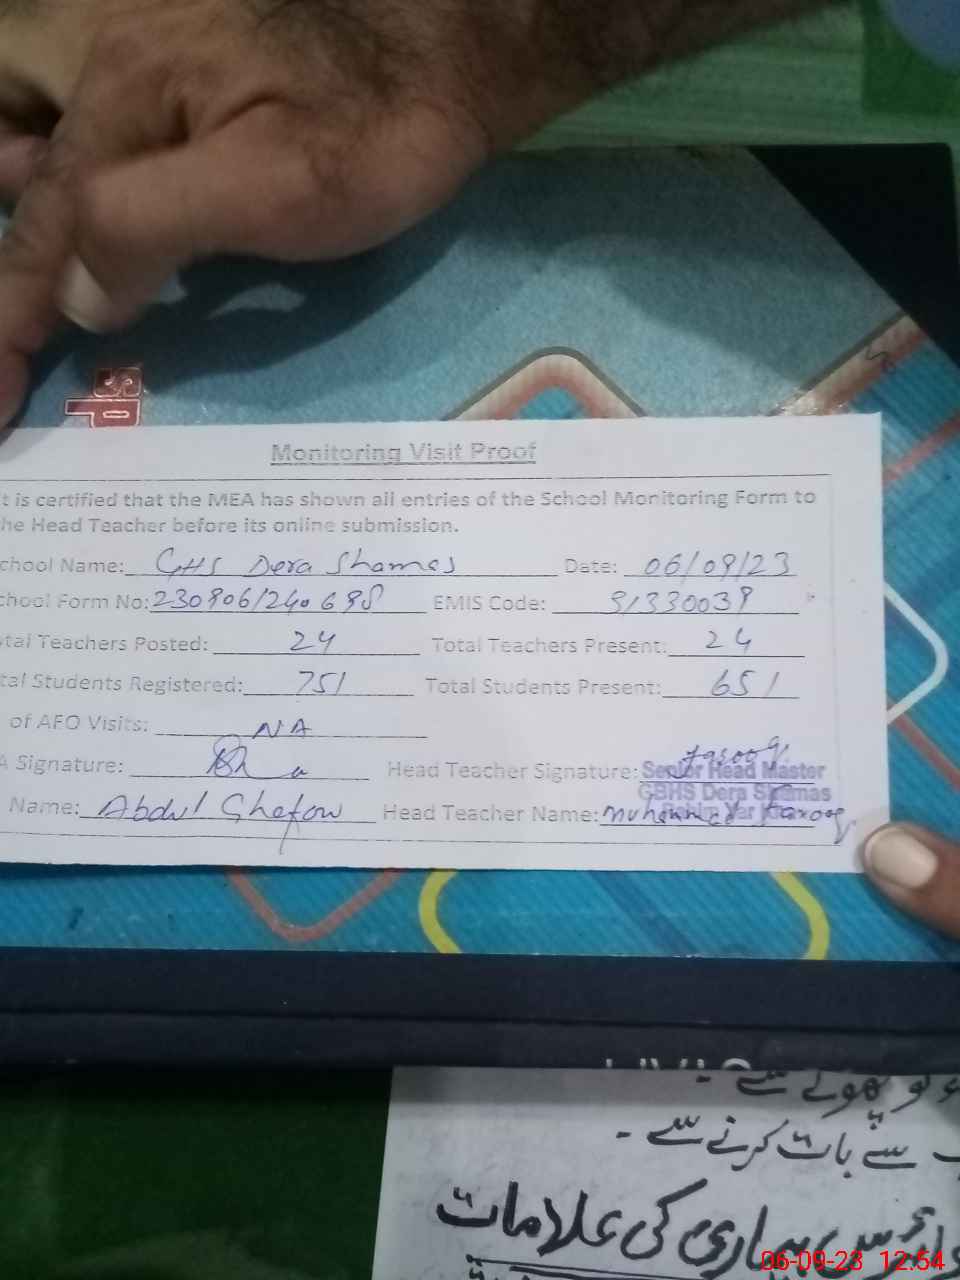 SP
Monitoring Visit Proof
t is certified that the MEA has shown all entries of the School Monitoring Form to
he Head Teacher before its online submission.
chool Name: GHS Dera Shamas Date: 06/09/23
chool Form No: 230906/240698 EMIS Code: 31330039
tal Teachers Posted: 24 Total Teachers Present: 24
tal Students Registered: 751 Total Students Present: 651
of AEO Visits: NA
A Signature: Head Teacher Signature: farooq
Senior Head Master
GBHS Dera Shamas
Rahim Yar Khan
Name: Abdul Ghafoor Head Teacher Name: Muhammad Farooq
تو چھونے سے۔
سے بات کرنے سے ۔
وائرس بیماری کی علامات
06-09-23 12:54